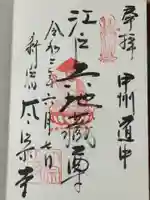 奉拝
甲州道中
江戸六地蔵尊
令和二年六月七日
新宿